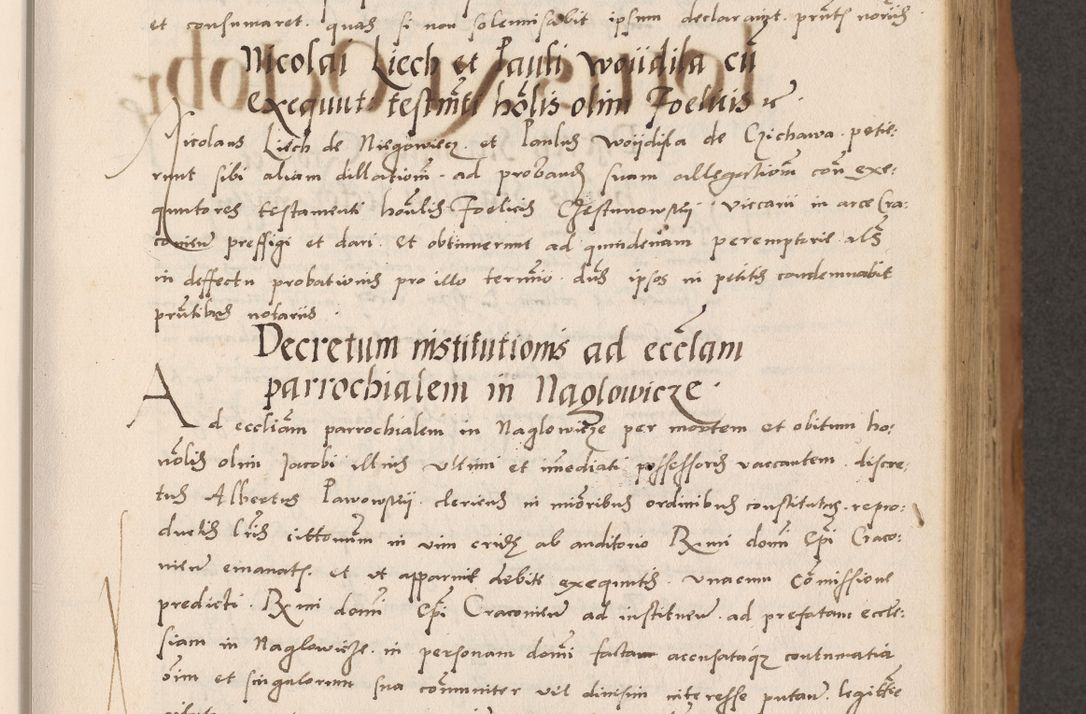 et consumaret quas si non solennisabit ipsum declaraint pñtib notariis
Nicolai Liech et Pauli woijdila cũ
exequut: testmti hõlis olim Foelicis ic.
Nicolaus Liech de Niegowiecz et Paulus Woijdila de Czichawa petie:
runt sibi aliam dillationẽ ad probandũ suam allegationẽ con exe:
quutores testamenti honlis Foelicis Chestunowskij vicarii in arce Cra:
covien preffigi et dari et obtinuerunt ad quindenam peremptorie als
in deffectu probationis pro illo termio dns ipsos in petitis condemnabit
pñtibus notariis
Decretum institutionis ad ecclam
parrochialem in Naglowicze.
Ad eccliam parrochialem in Naglowicze per mortem et obitum ho:
norlis olim Jacobi illius ultimi et imediati possessoris vaccantem discre:
tus Albertus Pawowskij clericus in mioribus ordinibus constitutus repro:
ductis lris cittorum in vim cridę ab auditorio Rmi domi Epi Craco:
vien emanats et ut apparuit debite exequutis unacum comissione
predicti Rmi domi Epi Cracovien ad instituen ad prefatam eccle:
siam in Naglowicze in personam domi factam accusataqz contumatia
oim et singulorum sua comuniter vel divisim interesse putan legittie